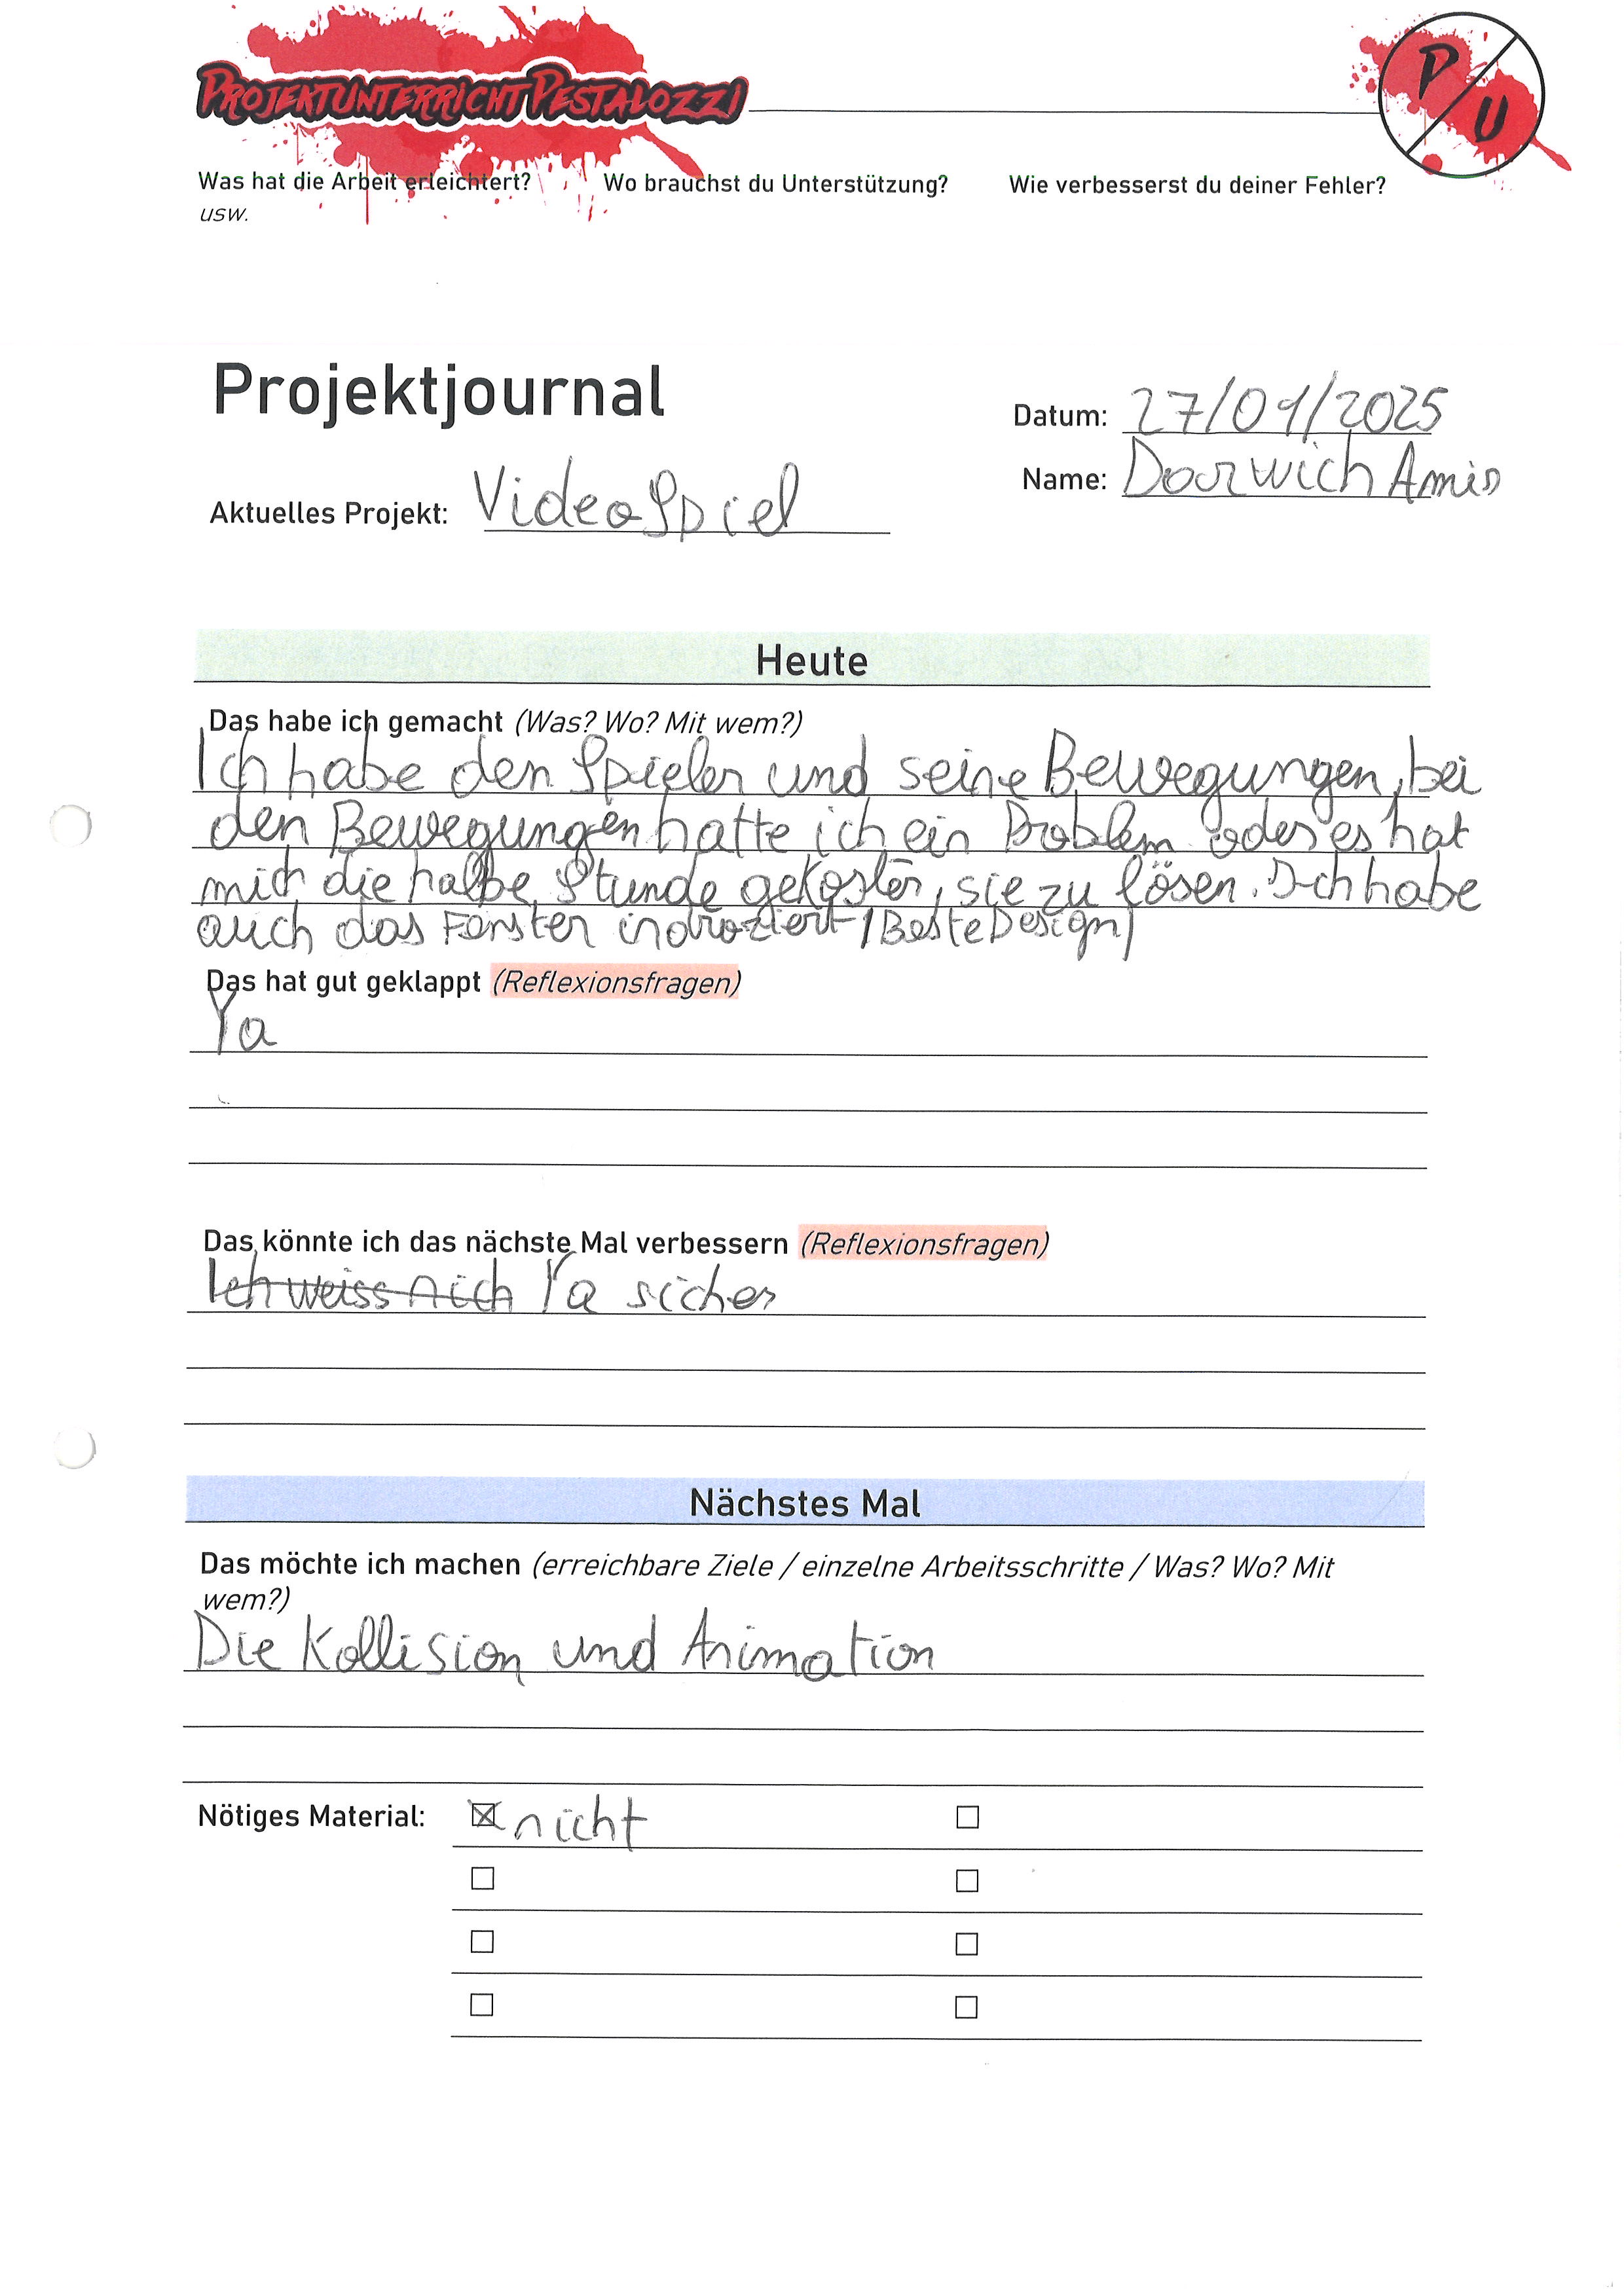 PROJEKTUNTERRICHT PESTALOZZI
P U
Was hat die Arbeit erleichtert? Wo brauchst du Unterstützung? Wie verbesserst du deiner Fehler?
usw.
Projektjournal
Datum: 27/01/2025
Name: Darwich Amir
Aktuelles Projekt: VideoSpiel
Heute
Das habe ich gemacht (Was? Wo? Mit wem?)
Ich habe den Spieler und seine Bewegungen, bei
den Bewegungen hatte ich ein Problem oder es hat
mich die halbe Stunde gekosten, sie zu lösen. Ich habe
auch das Fenster (BesteDesign)
Das hat gut geklappt (Reflexionsfragen)
Ya
Das könnte ich das nächste Mal verbessern (Reflexionsfragen)
Ich weiss nich Ya sicher
Nächstes Mal
Das möchte ich machen (erreichbare Ziele / einzelne Arbeitsschritte / Was? Wo? Mit
wem?)
Die Kollision und Animation
Nötiges Material: nicht